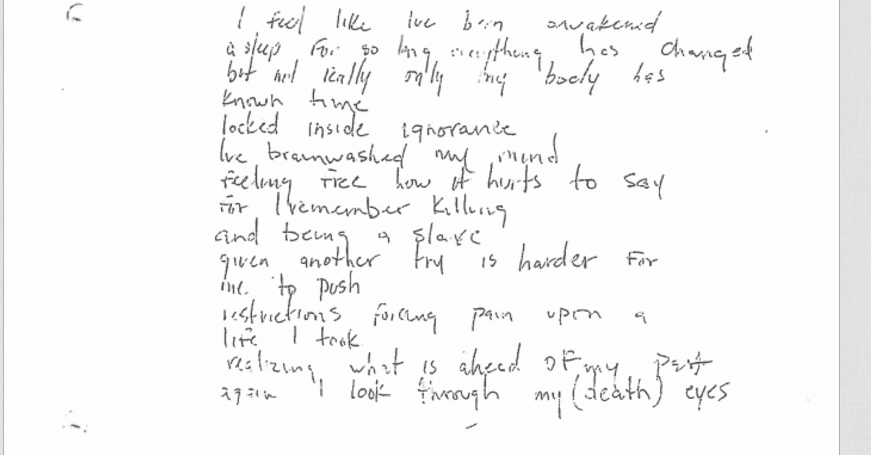 I feel like Ive been awakened
asleep for so long everything has changed
but not really only my body has
known time
locked inside ignorance
Ive brainwashed my mind
feeling free how it hurts to say
for I remember killing
and being a slave
given another try is harder for
me to push
restrictions forcing pain upon a
life I took
realizing what is ahead of my past
again I look through my (death) eyes